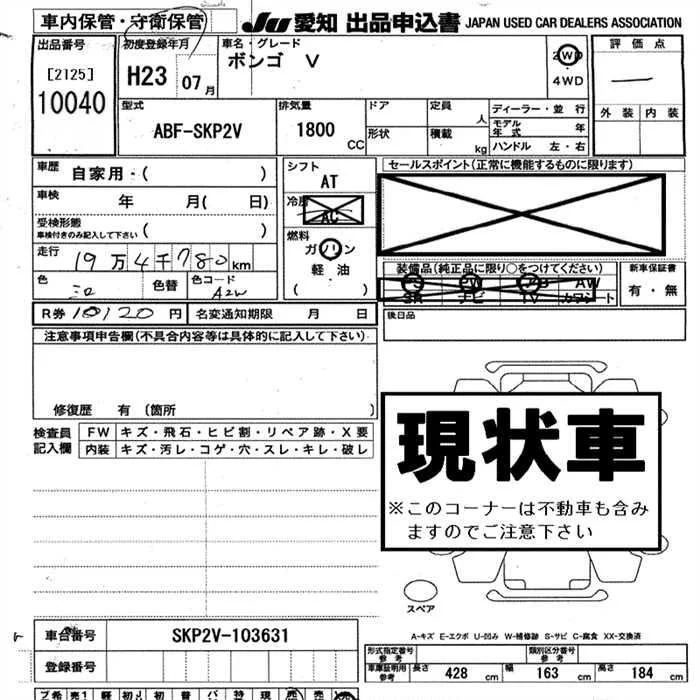 車内保管・守衛保管
JU 愛知 出品申込書 JAPAN USED CAR DEALERS ASSOCIATION
出品番号
[2125]
10040
初度登録年月
H23 07月
車名・グレード
ボンゴ V
2WD
4WD
評価点
―
外装 内装
型式
ABF-SKP2V
排気量
1800 CC
ドア
形状
定員 人
積載 kg
ディーラー・並行
モデル年式 年
ハンドル 左・右
車歴 自家用・( )
車検 年 月( 日)
受検形態
車検付きのみ記入して下さい ( )
走行 19万4千780km
色 色替 色コード
A2W
シフト
AT
冷房
AC
燃料
ガソリン
軽油
( )
セールスポイント(正常に機能するものに限ります)
装備品(純正品に限り○をつけてください)
PS PW AB AW
SR ナビ TV カワシート
新車保証書
有・無
R券 10120 円 名変通知期限 月 日
後日品
注意事項申告欄(不具合内容等は具体的に記入して下さい)
修復歴 有 〔箇所 〕
検査員
記入欄
FW キズ・飛石・ヒビ割・リペア跡・X要
内装 キズ・汚レ・コゲ・穴・スレ・キレ・破レ
現状車
※このコーナーは不動車も含み
ますのでご注意下さい
スペア
車台番号 SKP2V-103631
登録番号
A-キズ E-エクボ U-凹み W-補修跡 S-サビ C-腐食 XX-交換済
形式指定番号
参考
類別区分番号
参考
車庫証明用
参考
長さ 428 cm 幅 163 cm 高さ 184 cm